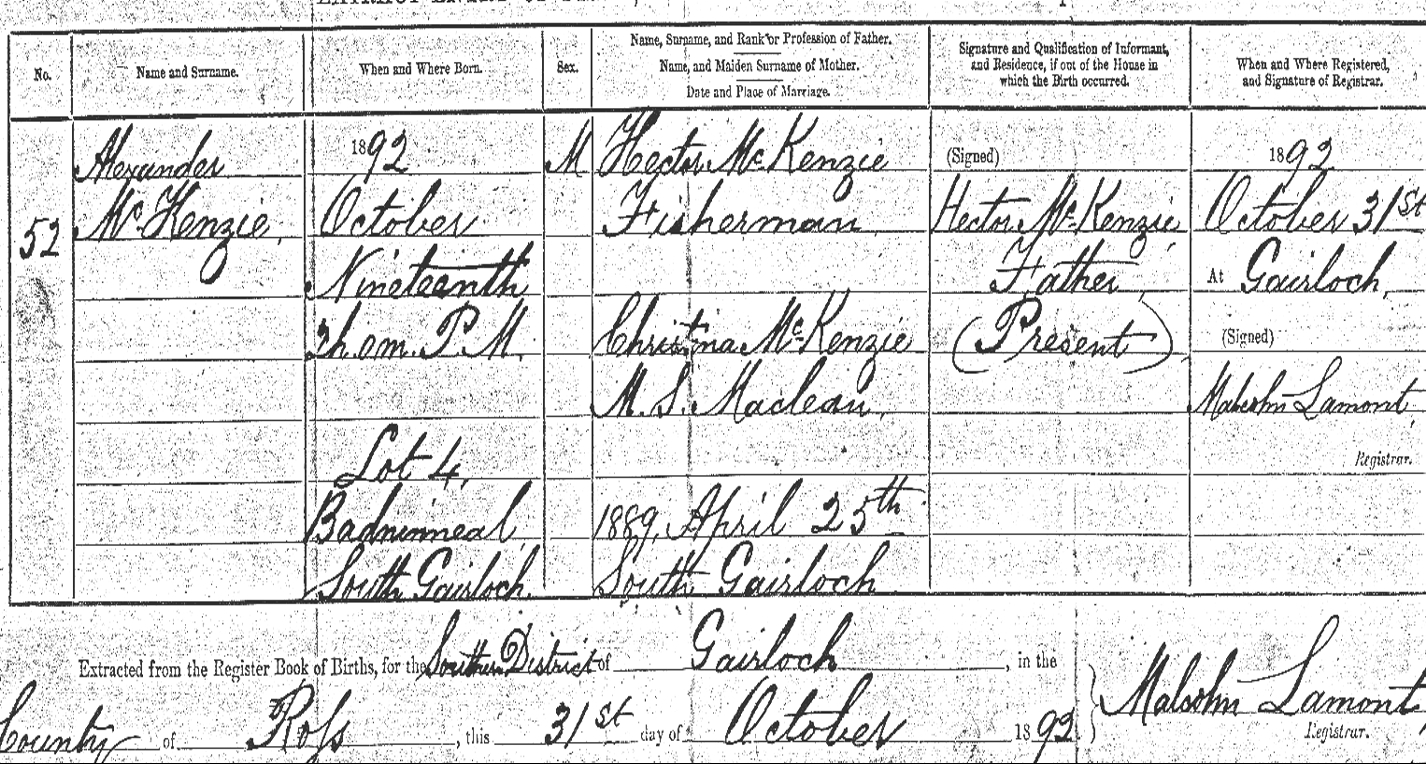 No.
Name and Surname.
When and Where Born.
Sex.
Name, Surname, and Rank or Profession of Father.
Name, and Maiden Surname of Mother.
Date and Place of Marriage.
Signature and Qualification of Informant,
and Residence, if out of the House in
which the Birth occurred.
When and Where Registered,
and Signature of Registrar.
52
Alexander
McKenzie,
1892
October
Nineteenth
2h. 0m. P.M.
Lot 4,
Badninmeal
South Gairloch.
M
Hector McKenzie
Fisherman
Christina McKenzie
M.S. Maclean,
1889, April 25th
South Gairloch
(Signed)
Hector McKenzie,
Father,
(Present)
1892
October 31st
At Gairloch,
(Signed)
Malcolm Lamont
Registrar.
Extracted from the Register Book of Births, for the Southern District of Gairloch, in the
County of Ross, this 31st day of October 1892
Malcolm Lamont
Registrar.